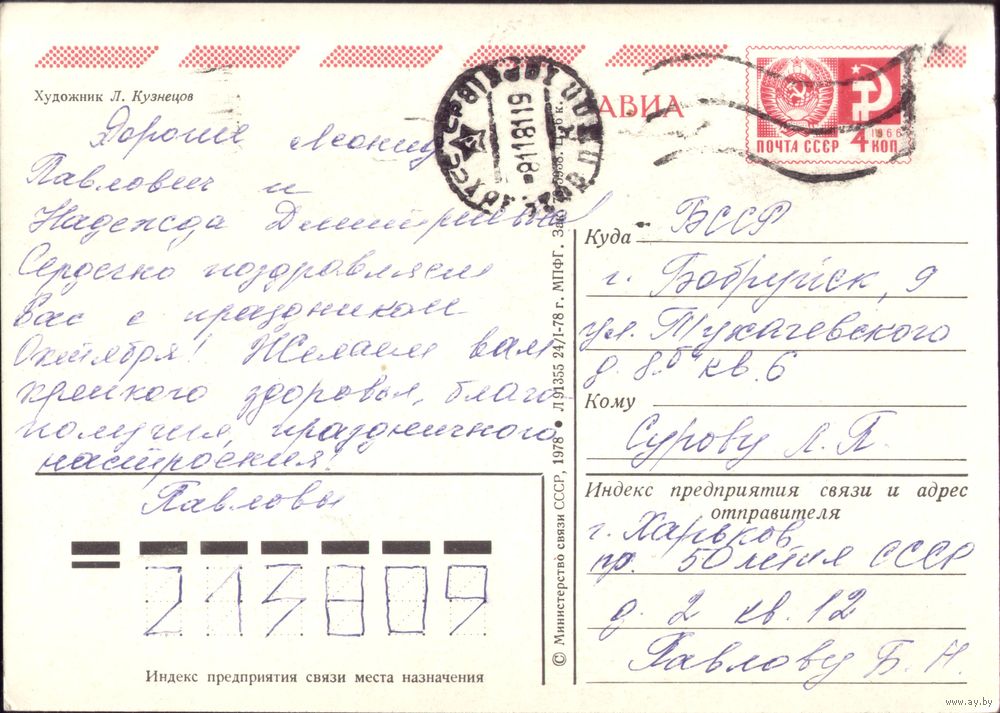 Художник Л. Кузнецов
АВИА
1966
ПОЧТА СССР 4 КОП
Дорогие Леонид
Павлович и
Надежда Дмитриевна!
Сердечно поздравляем
Вас с праздником
Октября! Желаем вам
крепкого здоровья, благо
получия, праздничного
настроения!
Павловы
213809
Индекс предприятия связи места назначения
© Министерство связи СССР, 1978 • Л 91355 24/I-78 г. МПФГ. Зак.
Куда БССР
г. Бобруйск, 9
ул. Тухачевского
д. 8б кв. 6
Кому
Сурову Л. П.
Индекс предприятия связи и адрес
отправителя
г. Харьков
пр. 50 летия СССР
д. 2 кв. 12
Павлову Б. Н.
www.ay.by